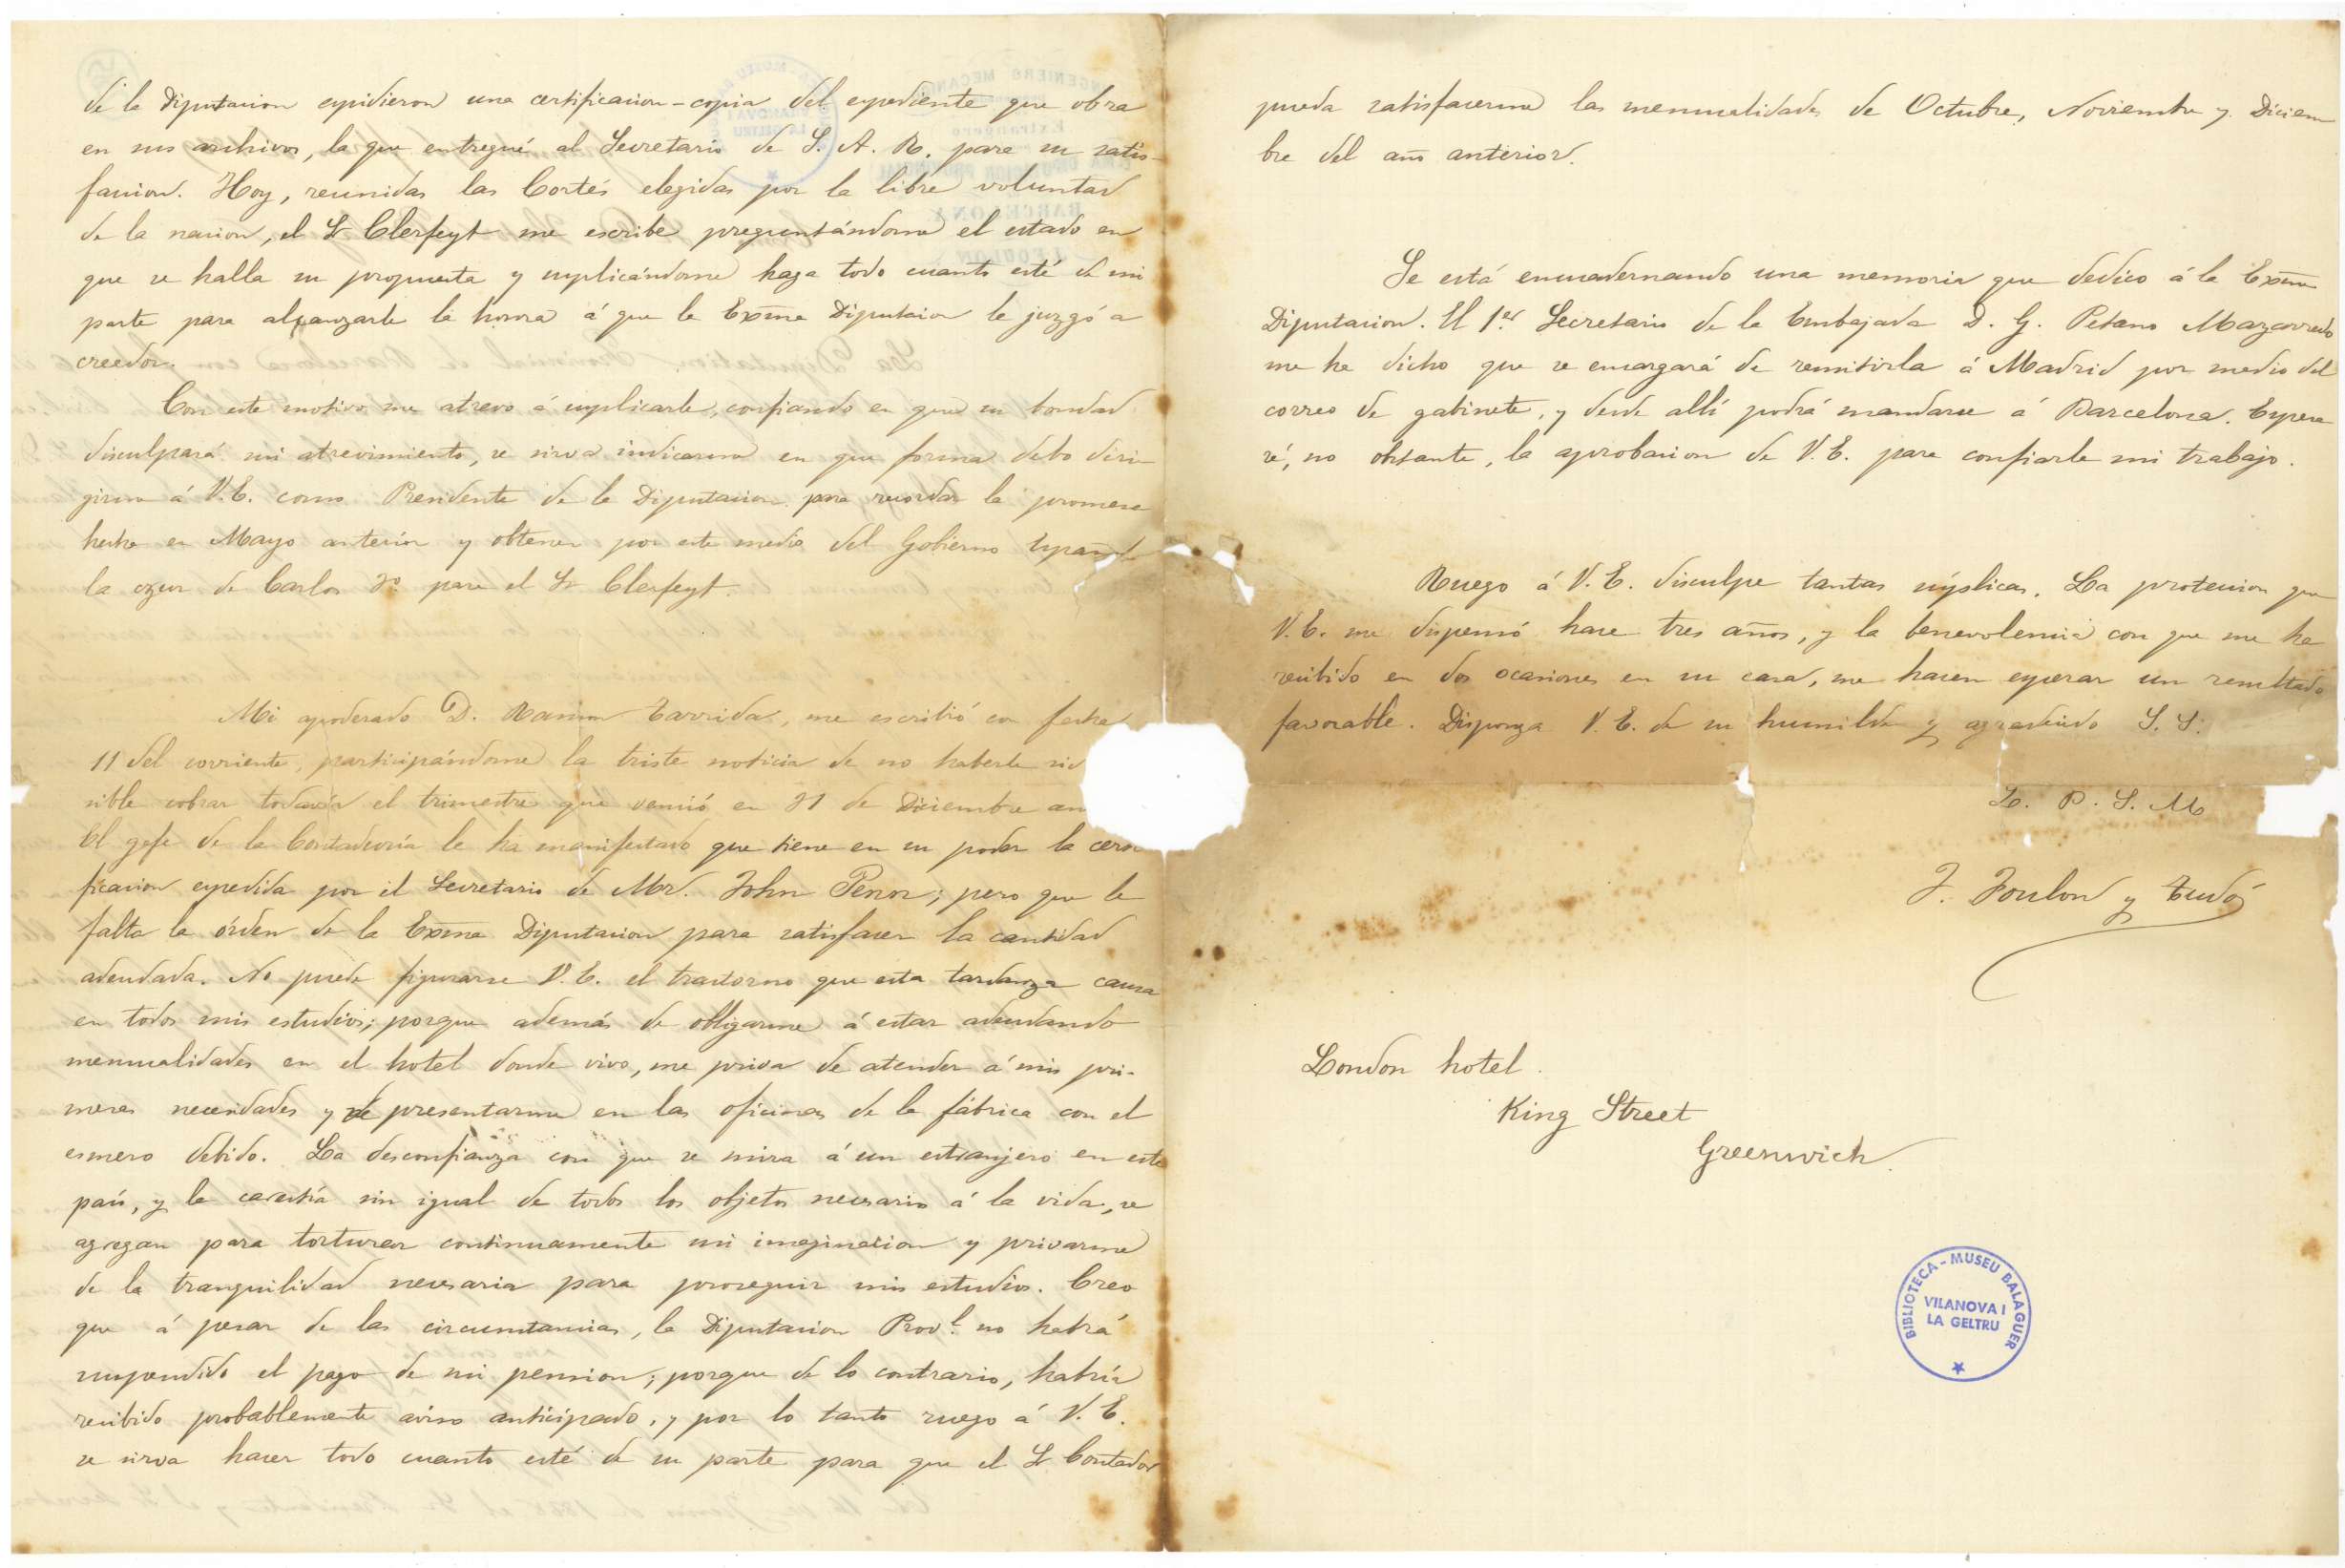 de la Diputacion expidieron una certificacion-copia del expediente que obra
en sus archivos, la que entregué al Secretario de S. A. R. para su satis-
faccion. Hoy, reunidas las Cortés elegidas por la libre voluntad
de la nacion, el Sr Clerfeyt me escribe preguntándome el estado en
que se halla su propuesta y suplicándome haga todo cuanto esté de mi
parte para alcanzarle la honra á que la Exma Diputacion le juzgó a
creedor.
Con este motivo me atrevo á suplicarle, confiando en que su bondad
disculpará mi atrevimiento, se sirva indicarme en que forma debo diri
girme á V.E. como Presidente de la Diputacion para recordar la promesa
hecha en Mayo anterior y obtener por este medio del Gobierno Español
la cruz de Carlos 3º para el Sr Clerfeyt.
Mi apoderado D. Ramon Tarrida, me escribió con fecha
11 del corriente, participándome la triste noticia de no haberle sid
sible cobrar todavía el trimestre que venció en 31 de Diciembre an
El gefe de la Contaduría le ha manifestado que tiene en su poder la certi
ficacion expedida por el Secretario de Mr. John Penn; pero que le
falta la órden de la Exma Diputacion para satisfacer la cantidad
adeudada. No puede figurarse V.E. el trastorno que esta tardanza causa
en todos mis estudios; porque además de obligarme á estar adeudando
mensualidades en el hotel donde vivo, me priva de atender á mis pri-
meras necesidades y de presentarme en las oficinas de la fábrica con el
esmero debido. La desconfianza con que se mira á un estranjero en este
pais, y la carestía sin igual de todos los objetos necesarios á la vida, se
agregan para torturar continuamente mi imaginacion y privarme
de la tranquilidad necesaria para proseguir mis estudios. Creo
que á pesar de las circunstancias, la Diputacion Provl. no habrá
suspendido el pago de mi pension; porque de lo contrario, habría
recibido probablemente aviso anticipado, y por lo tanto ruego á V.E.
se sirva hacer todo cuanto esté de su parte para que el Sr Contador
pueda satisfacerme las mensualidades de Octubre, Noviembre y Diciem
bre del año anterior.
Se está encuadernando una memoria que dedico á la Exma
Diputacion. El 1er Secretario de la Embajada D. G. Petano Mazarredo
me ha dicho que se encargará de remitirla á Madrid por medio del
correo de gabinete, y desde allí podrá mandarse á Barcelona. Espera
ré, no obstante, la aprobacion de V.E. para confiarle mi trabajo.
Ruego á V.E. disculpe tantas súplicas. La proteccion que
V.E. me dispensó hace tres años, y la benevolencia con que me ha
recibido en dos ocasiones en su casa, me hacen esperar un resultado
favorable. Disponga V.E. de su humilde y agradecido S. S.
Q. B. S. M
J. Foulon y Tudó
London hotel.
King Street
Greenwich.
BIBLIOTECA - MUSEU BALAGUER
VILANOVA I
LA GELTRU